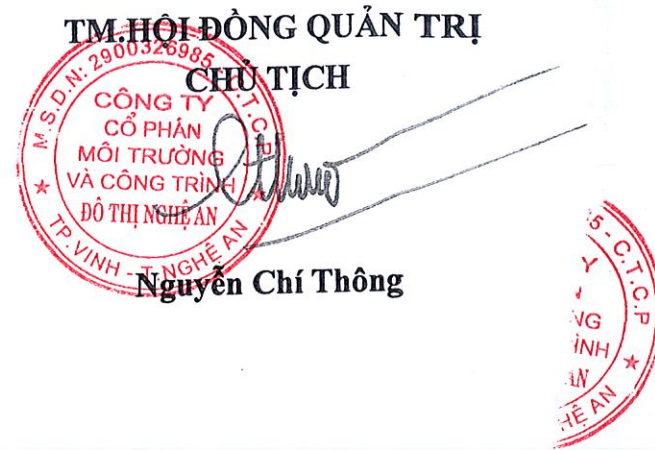 TM.HỘI ĐỒNG QUẢN TRỊ
CHỦ TỊCH
M.S.D.N: 2900326985 - C.T.C.P
CÔNG TY
CỔ PHẦN
MÔI TRƯỜNG
VÀ CÔNG TRÌNH
ĐÔ THỊ NGHỆ AN
TP. VINH - T. NGHỆ AN
Nguyễn Chí Thông
5 - C.T.C.P
Y
NG
ÌNH
AN
HỆ AN